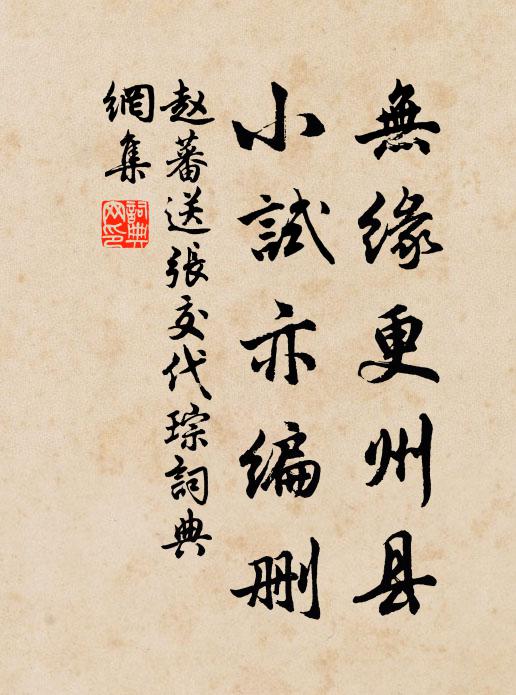 無缘更州县
小試亦编删
赵蕃送張交代琮詞典
網集
詞典
网印